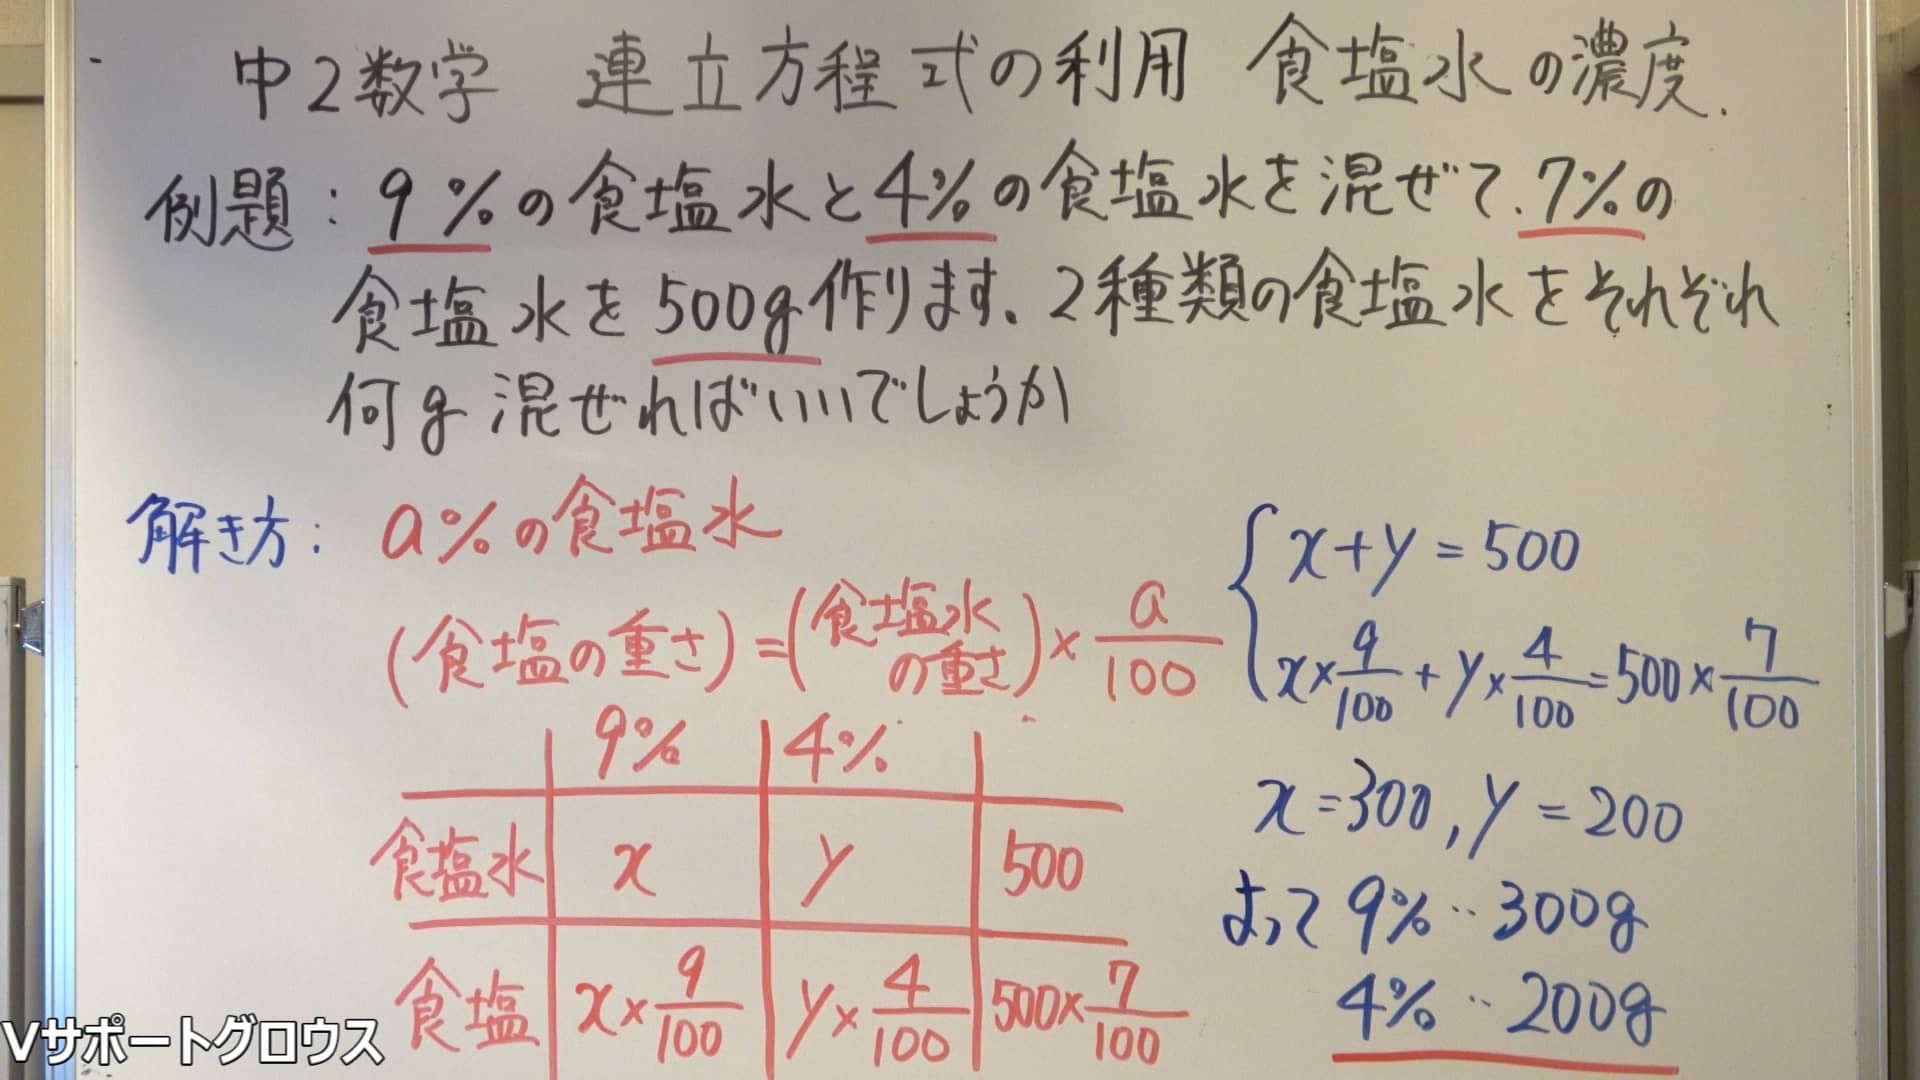 中2数学 連立方程式の利用 食塩水の濃度.
例題：9%の食塩水と4%の食塩水を混ぜて、7%の
食塩水を500g作ります。2種類の食塩水をそれぞれ
何g混ぜればいいでしょうか
解き方： a%の食塩水
(食塩の重さ)=(食塩水の重さ)×a/100
9% 4%
食塩水 x y 500
食塩 x×9/100 y×4/100 500×7/100
{x+y=500
x×9/100+y×4/100=500×7/100
x=300,y=200
よって 9%‥300g
4%‥200g
Vサポートグロウス